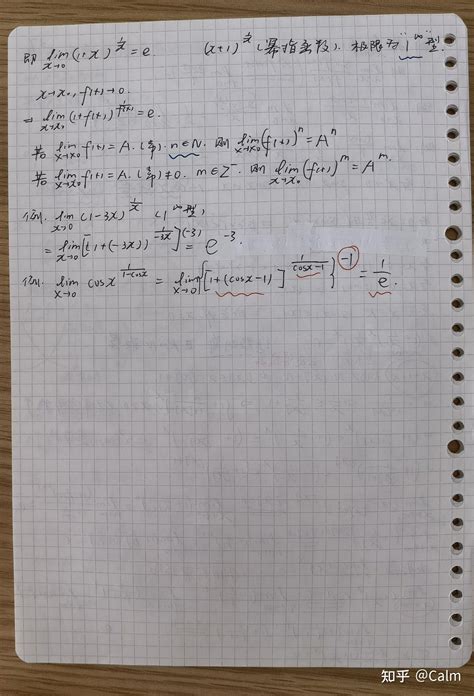 即 lim_{x→0} (1+x)^{1/x} = e. (x+1)^{1/x} (幂指函数). 极限为“1^∞”型.
x→x₀, f(x)→0.
⇒ lim_{x→x₀} (1+f(x))^{1/f(x)} = e.
若 lim_{x→x₀} f(x) = A. n∈N. 则 lim_{x→x₀} (f(x))^n = A^n
若 lim_{x→x₀} f(x) = A. ≠0. m∈Z⁻. 则 lim_{x→x₀} (f(x))^m = A^m.
例. lim_{x→0} (1-3x)^{1/x} (1^∞型)
= lim_{x→0} [(1+(-3x))^{1/-3x}]^{(-3)} = e^{-3}.
例. lim_{x→0} cosx^{1/1-cosx} = lim_{x→0} {[1+(cosx-1)]^{1/cosx-1}}^{-1} = 1/e.
知乎 @Calm